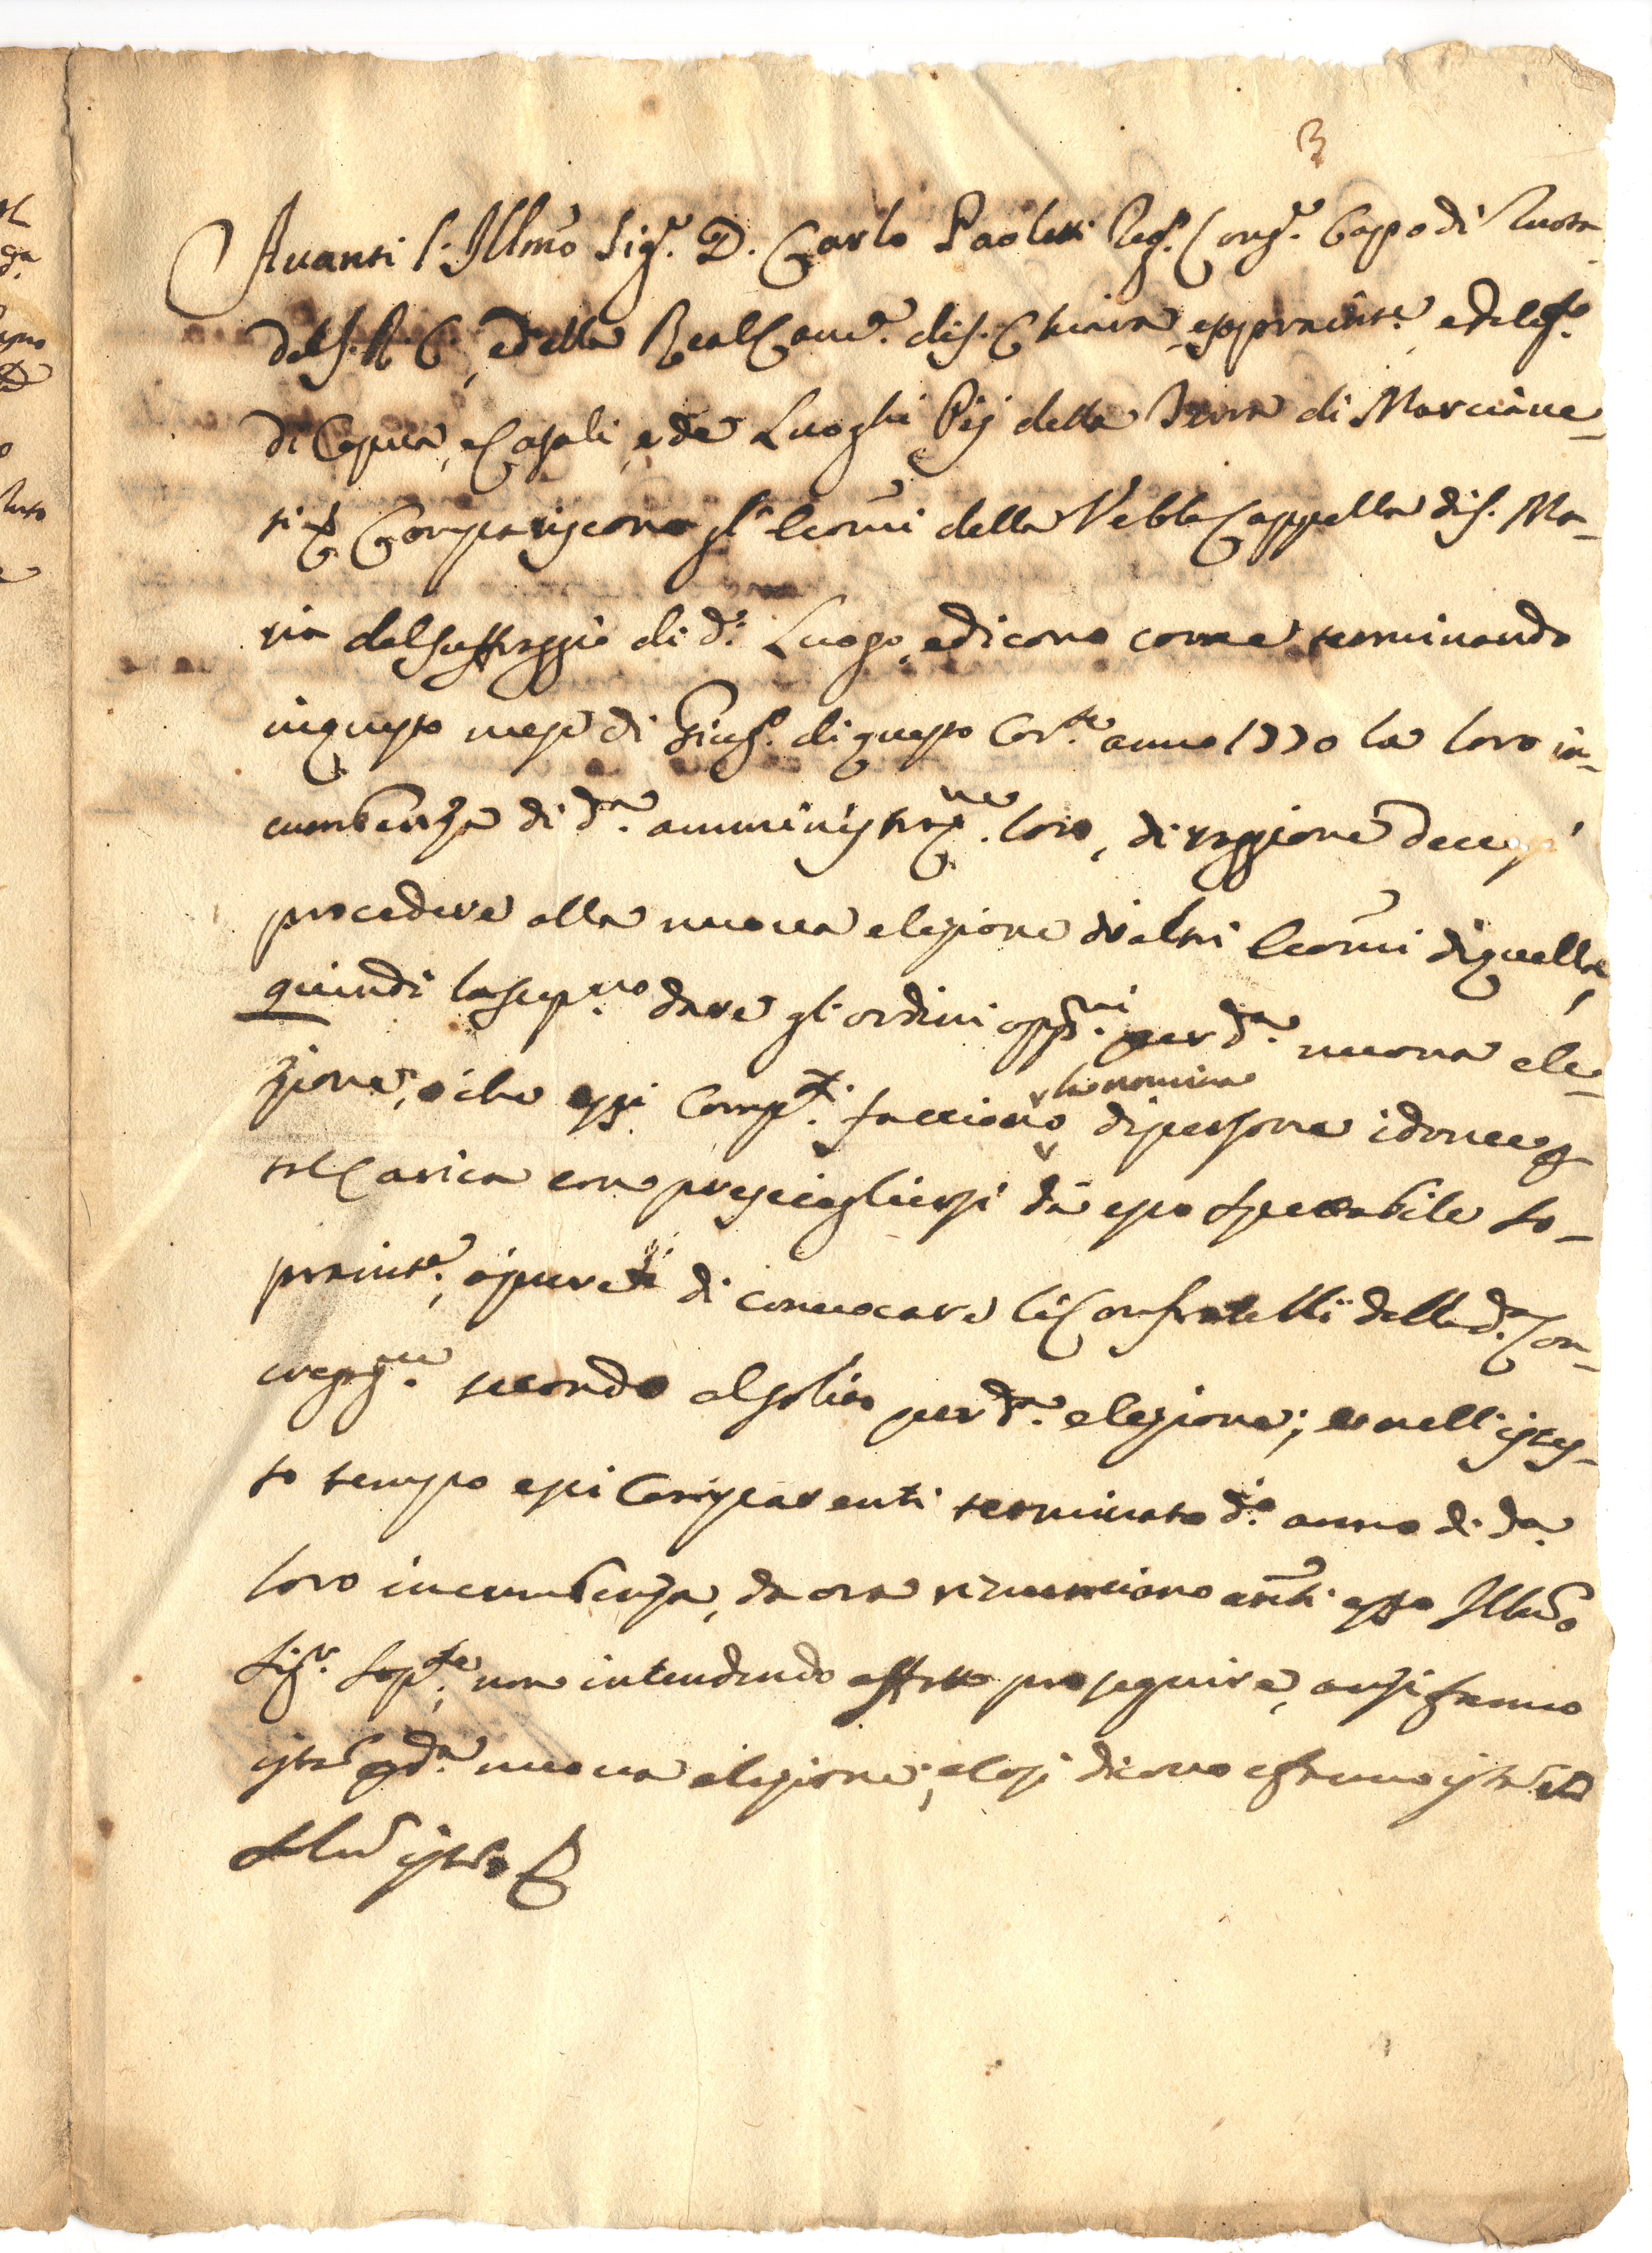 3
Avanti l'Illmo Sig.r D. Carlo Paoletti Reg.o Consig.re Cappo di Ruota
del S. R. C., e della Real Cam.a di S. Chiara, e sopraint.e, e deleg.to
di Capua, e Casali, e de Luoghi Pij della Terra di Marciane-
si Compariscono gl' Econmi della Vebbe Cappella di S. Ma-
ria del Suffraggio di d.o Luogo, e dicono come terminando
in questo mese di Giug.o di questo Cor.te anno 1770 la loro in-
cumbenza di d.a amministraz.ne loro, di raggione devesi
procedere alla nuova elezione di altri Econmi di quella,
quindi la sup.no dare gl' ordini opp.ni per d.a nuova ele-
zione, o che essi Comp.ti facciano la nomina di persone idonee p
tal Carica con prescegliersi da esso spettabile So-
praint.e, o pure di convocare li Confratelli della d.a Con-
gregaz.ne secondo al solito per d.a elezione; et nell' istes-
so tempo essi Comparenti terminato d.o anno di d.a
loro incumbenza, da ora rinunciano avnti esso Illmo
Sig.r Sop.te, non intendendo affatto proseguire, anzi fanno
ist.a p d.a nuova elezione; e così dicono e fanno ist.a